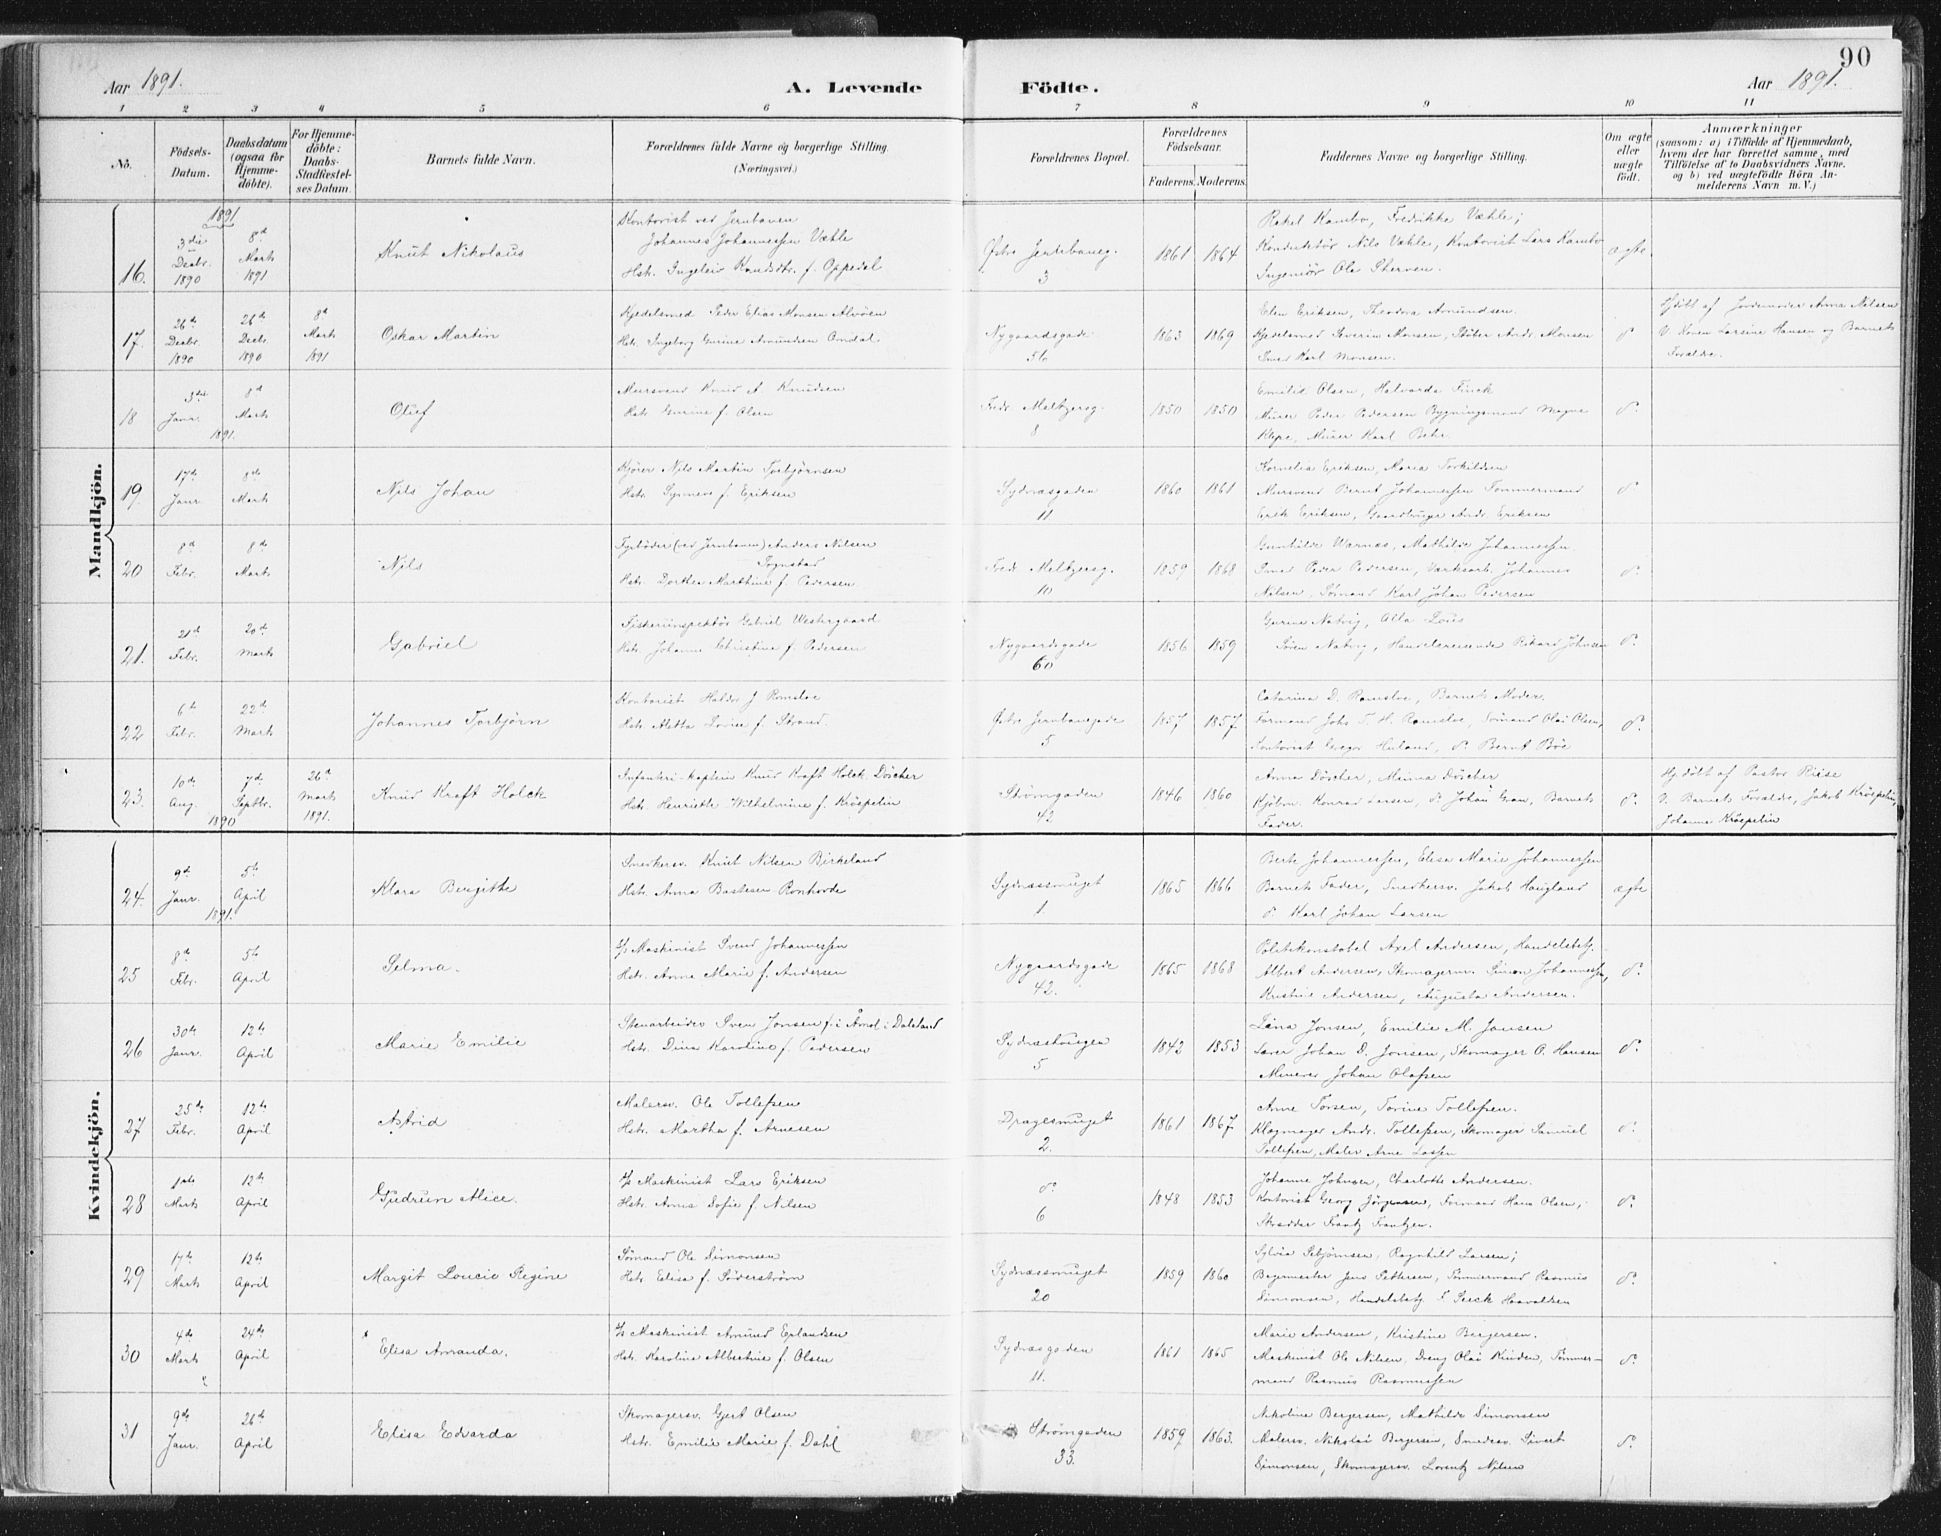 90
Aar 1891.
A. Levende Födte.
Aar 1891.
1 2 3 4 5 6 7 8 9 10 11
No.
Födsels-Datum.
Daabsdatum (ogsaa for Hjemme-döbte).
For Hjemme-döbte: Daabs-Stadfæstel-ses Datum.
Barnets fulde Navn.
Forældrenes fulde Navne og borgerlige Stilling. (Næringsvei.)
Forældrenes Bopæl.
Forældrenes Födselsaar. Faderens. Moderens.
Faddernes Navne og borgerlige Stilling.
Om ægte eller uægte födt.
Anmærkninger (saasom: a) i Tilfælde af Hjemmedaab, hvem der har forrettet samme, med Tilföielse af to Daabsvidners Navne, og b) ved uægtefödte Börn An-melderens Navn m. V.)
Mandkjön.
1891
16. 3die Decbr. 1890 8d Marts 1891
Knut Nikolaus
Kontorist ved Jernbanen
Johannes Johannessen Væhle
Hstr. Ingeleiv Knudsdtr. f. Oppedal
Østre Jernbaneg. 3
1861 1864
Rakel Kambo, Fredrikke Væhle;
Konduktör Nils Væhle, Kontorist Lars Kambo
Ingeniör Ole Skerven.
ægte.
17. 26d Decbr. 1890 26d Decbr. 1890 8d Marts 1891
Oskar Martin
Kjedelsmed Peder Elias Monsen Alvöen
Hstr. Ingeborg Gurine Amundsen Ondal
Nygaardsgade 56
1863 1869
Elen Eriksen, Theodora Amundsen
Kjedelsmed Severin Monsen, Støber Andr. Monsen
Smed Karl Monsen.
do
Hjdöbt af Jordemoder Anna Nilsen
V. Konen Larsine Hansen og Barnets
Forældre.
18 3die Janr. 8d Marts 1891.
Oluf
Mursvend Knud A. Knudsen
Hstr. Gurine f. Olsen
Fredr. Meltzersg. 8
1850 1850
Emilie Olsen, Halvarda Finck
Murer Peder Pedersen Bygningsmand Magne
Klepe, Murer Karl Behr.
do
19 17de Janr. 8de Marts
Nils Johan
Kjører Nils Martin Torbjörnsen
Hstr. Synneve f. Eriksen
Sydnæsgaden 11.
1860 1861
Kornelia Eriksen, Maria Torkildsen
Mursvend Bernt Johannessen Tömmermand
Erik Eriksen, Gaardbruger Andr. Eriksen
do
20 8d Febr. 8d Marts
Nils
Fyrböder (ved Jernbanen) Anders Nilsen
Sognstad
Hstr. Dorthea Marthine f. Pedersen
Fredr. Meltzersg. 10
1859 1868
Gunhilde Warnæs, Mathilde Johannessen
Smed Peder Pedersen, Værksarb. Johannes
Nilsen, Sömand Karl Johan Pedersen
do
21. 21d Febr. 20d Marts
Gabriel
Fiskeriinspektör Gabriel Westergaard
Hstr. Johanne Christine f. Pedersen
Nygaardsgade 60
1856 1859
Gurine Natvig, Alla
Sören Natvig, Handelsreisende Rikard Johnsen
do
22 6te Febr. 22d Marts
Johannes Torbjörn
Kontorist Haldor J Romsloe
Hstr. Aletta Lovise f. Strand
Østre Jernbanegade 5
1857 1857
Catarina D. Romsloe, Barnets Moder.
Formand Johs T. H. Romsloe, Sömand Olai Olsen,
Kontorist Gregor Huland, do Bernt Böe
do
23. 10de Aug. 7d Septbr. 1890 26d Marts 1891.
Knud Kraft Holck
Infanteri-Kaptein Knud Kraft Holck Döscher
Hstr. Henriette Wilhelmine f. Kröepelin
Strömgaden 42
1846 1860
Anna Döscher, Minna Döscher
Kjöbm. Konrad Larsen, do Johan Gran, Barnets
Fader.
do
Hjdöbt af Pastor Riise
V. Barnets Forældre, Jakob Kröepelin
Johanne Kröepelin
Kvindekjön.
24. 9d Janr. 5te April 1891.
Klara Bergitte
Snedkersv. Knut Nilsen Birkeland
Hstr. Anna Bastesen Ronhovde
Sydnæssmuget 1.
1865 1866
Berte Johannessen, Elisa Marie Johannessen
Barnets Fader, Snedkersv. Jakob Haugland
do Karl Johan Larsen
ægte
25 8d Febr. 5te April
Selma.
Maskinist Svend Johannessen
Hstr. Anna Marie f. Andersen
Nygaardsgade 42.
1865 1868
Politikonstabel Axel Andersen, Handelsbetj.
Albert Andersen, Skomagermr. Simon Johannessen,
Kristine Andersen, Augusta Andersen.
do
26 30te Janr. 12te April
Marie Emilie
Stenarbeider Sven Jonsen f. i Åmol i Dalsland
Hstr. Dina Karoline f. Pedersen
Sydnæshaugen 5
1842 1853
Lina Jonsen, Emilie M. Jansen
Johan O. Jonsen, Skomager O. Hansen
Minerer Johan Olafsen
do
27 25de Febr. 12te April
Astrid
Malersv. Ole Tollefsen
Hstr. Martha f. Arnesen
Dragesmuget 2.
1861 1867
Anne Torsen, Torine Tollefsen.
Andr. Tollefsen, Skomager Samuel
Tollefsen, Maler Arne Lassen
do
28 1ste Marts 12te April
Gudrun Alice.
Maskinist Lars Eriksen
Hstr. Anna Sofie f. Nilsen
do 6
1848 1853
Johanne Johnsen, Charlotte Andersen.
Kontorist Georg Jörgensen, Formand Hans Olsen,
Skrædder Frantz Frantzen.
do
29 17de Marts 12te April
Margit Loucie Regine
Sömand Ole Simonsen
Hstr. Elisa f. Söderström
Sydnæssmuget 20
1859 1860
Sylvia Sebjörnsen, Ragnhild Larsen;
Bagermester Jens Pettersen, Tömmermand Rasmus
Simonsen, Handelsbetj. Haavaldsen
do
30 4de Marts 24de April
Elisa Amanda.
Maskinist Amund Erlandsen
Hstr. Karoline Albertine f. Olsen
Sydnæsgaden 11.
1861 1865
Marie Andersen, Kristine Bergersen.
Maskinist Ole Nilsen, Dreng Olai Kinden, Tömmer-
mand Rasmus Rasmussen
do
31 9de Janr. 26de April
Elisa Edvarda
Skomagersv. Gjert Olsen
Hstr. Emilie Marie f. Dahl
Strömgaden 33.
1859 1863.
Nikoline Bergersen, Mathilde Simonsen
Malersv. Nikolai Bergersen, Smedesv. Sivert
Simonsen, Skomagersv. Lorentz Nilsen
do